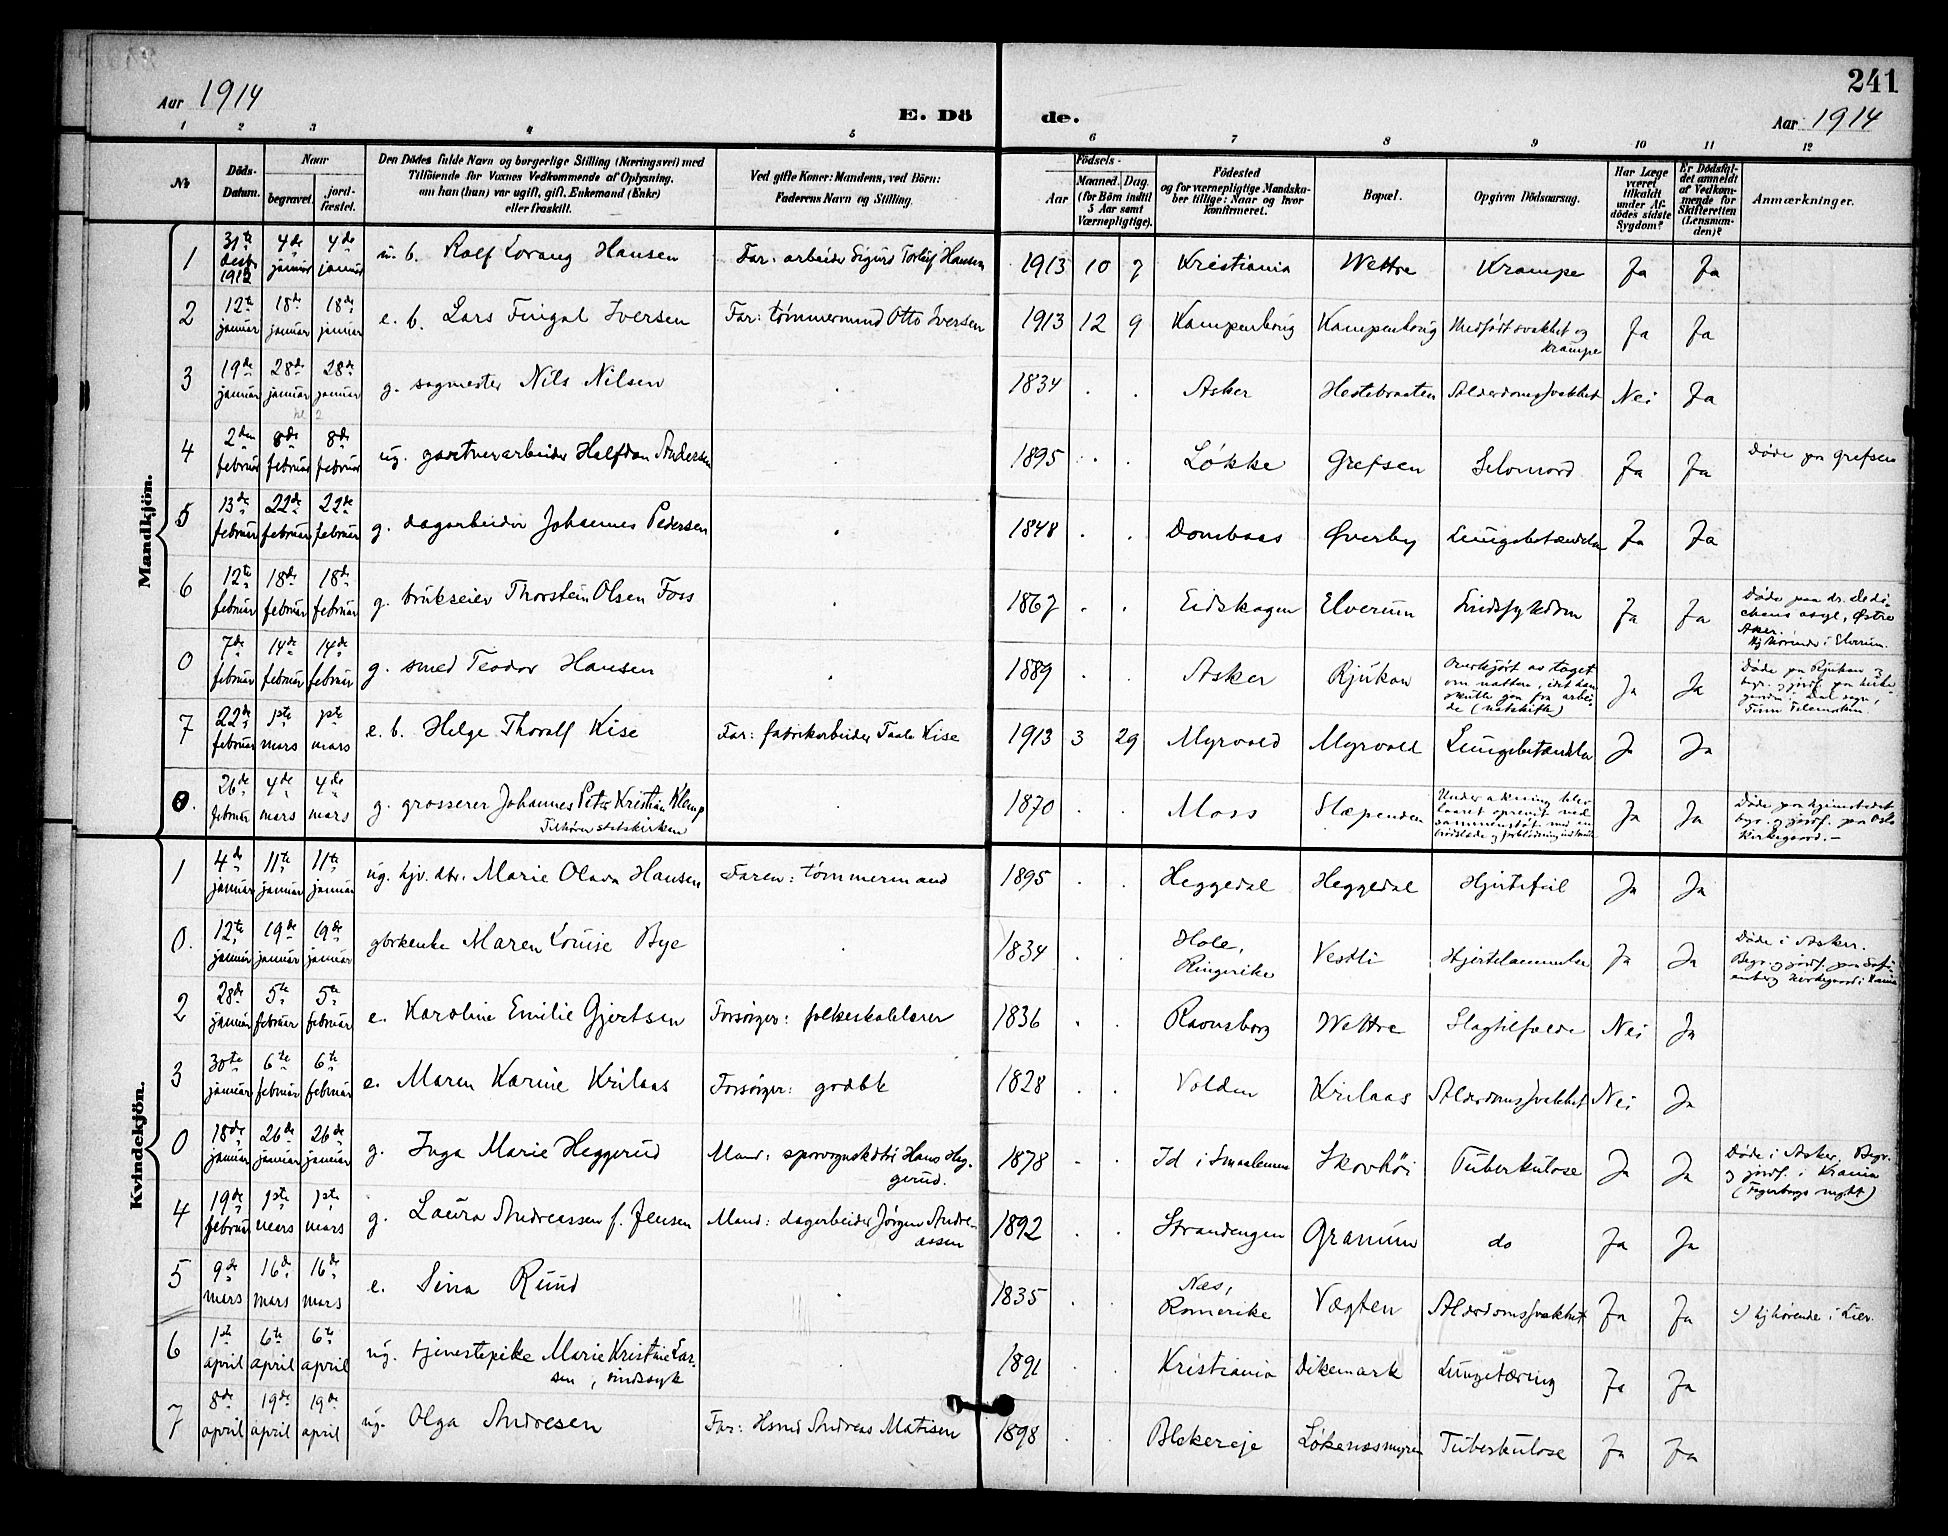 241
Aar 1914
E. Dö
de.
Aar 1914
1 2 3 4 5 6 7 8 9 10 11 12
No
Döds-Datum.
Naar
begravet.
jord-fæstet.
Den Dödes fulde Navn og borgerlige Stilling (Næringsvei) med
Tilföiende for Voxnes Vedkommende af Oplysning,
om han (hun) var ugift, gift, Enkemand (Enke)
eller fraskilt.
Ved gifte Koner: Mandens, ved Börn:
Faderens Navn og Stilling.
Födsels-
Aar
Maaned. Dag.
(for Börn indtil
5 Aar samt
Værnepligtige).
Födested
og for værnepligtige Mandsku-
ber tillige: Naar og hvor
konfirmeret.
Bopæl.
Opgiven Dödsaarsag.
Har Læge
været
tilkaldt
under Af-
dödes sidste
Sygdom?
Er Dödsfal-
det anmeldt
af Vedkom-
mende for
Skifteretten
(Lensman-
den)?
Anmærkninger.
Mandkjön.
1 31te desbr 1913 4de januar 4de januar u. b. Rolf Lorang Hansen Far: arbeider Sigurd Torleif Hansen 1913 10 7 Kristiania Wettre Krampe Ja Ja
2 12te januar 18de januar 18de januar e. b. Lars Fingal Iversen Far: tømmermand Otto Iversen 1913 12 9 Kampenborig Kampenborig Medfødt svakhet og krampe Ja Ja
3 19de januar 28de januar 28de januar g. sagmester Nils Nilsen 1834 Asker Hestebraaten Alderdomssvakhet Nei Ja
4 2den februar 8de februar 8de februar ug. gartnerarbeider Halfdan Andersen 1895 Løkke Grefsen Selvmord Ja Ja Døde paa Grefsen
5 13de februar 22de februar 22de februar g. dagarbeider Johannes Pedersen 1848 Dombaas Øverby Lungebetændelse Ja Ja
6 12te februar 18de februar 18de februar g. brukseier Thorstein Olsen Foss 1867 Eidskogen Elverum Sindssykdom Ja Ja Døde paa dr. Dedi-
chens asyl, Østre
Aker.
Hjhørende i Elverum.
0 7de februar 14de februar 14de februar g. smed Teodor Hansen 1889 Asker Rjukan Overkjørt av toget
om natten, idet han
skulle gaa fra arbei-
de (natskifte) Ja Ja Døde paa Rjukan og
begr. og jordf. paa kirke-
gaarden i Dal sogn,
Tinn Telemarken.
7 22de februar 1ste mars 1ste mars e. b. Helge Thoralf Kise Far: fabrikarbeider Taale Kise 1913 3 29 Myrvold Myrvold Lungebetændelse Ja Ja
0. 26de februar 4de mars 4de mars g. grosserer Johannes Peter Kristian Klemp
Tilhører statskirken 1870 Moss Slæpenden Under akning blev
laaret oprevet ved
sammenstøt med en
Ja Ja Døde paa hjemstedet
begr. og jordf. paa Oslo
kirkegaard.
Kvindekjön.
1 4de januar 11te januar 11te januar ug. hjv. dtr. Marie Olava Hansen Faren: tømmermand 1895 Heggedal Heggedal Hjertefeil Ja Ja
0. 12te januar 19de januar 19de januar gbrkenke Maren Louise Bye 1834 Hole, Ringerike Vestli Hjertelammelse Ja Ja Døde i Asker.
Begr. og jordf. paa Sofi-
enberg kirkegaard i Krania
2 28de januar 5te februar 5te februar e. Karoline Emilie Gjertsen Forsørger: folkeskolelærer 1836 Ravnsborg Wettre Slagtilfælde Nei Ja
3 30te januar 6te februar 6te februar e. Maren Karine Krilaas Forsørger: grdbk 1828 Volden Krilaas Alderdomssvakhet Nei Ja
0 18de januar 26de januar 26de januar g. Inga Marie Heggerud Mand: sporvognskdtr Hans Heg-
gerud. 1878 Id i Smaalenene Skovhøi Tuberkulose Ja Ja Døde i Asker, Begr.
og jordf. i Krania
(Fagerborgs mght)
4 19de februar 1ste mars 1ste mars g. Laura Andreassen f. Jensen Mand: dagarbeider Jørgen Andre-
assen 1892 Strandengen Granum do Ja Ja
5 9de mars 16de mars 16de mars e. Sina Ruud 1835 Næs, Romerike Vøgten Alderdomssvakhet Ja Ja hjhørende i Lier.
6 1ste april 6te april 6te april ug. tjenestepike Marie Kristine Lar-
sen, sindssyk 1891 Kristiania Dikemark Lungetæring Ja Ja
7 8de april 19de april 19de april ug. Olga Andresen Far: Hsmd Andreas Matisen 1898 Blekereje Løkenesmyren Tuberkulose Ja Ja